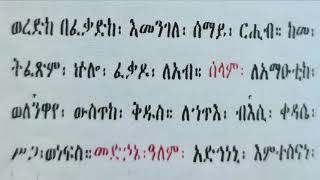 ወረድከ በፈቃድከ፡ እመንገለ፡ ሰማይ፡ ርሒብ። ከመ፡
ትፈጽም፡ ኵሎ፡ ፈቃዱ፡ ለአብ። ሰላም፡ ለአማዑቲከ፡
ወለንዋየ፡ ውስጥከ፡ ቅዱስ። ለኀጥእ፡ ብእሲ፡ ቀዳሴ፡
ሥጋ፡ ወነፍስ። መድኃኔ፡ ዓለም፡ አድኅነኒ፡ እምተስናን፡